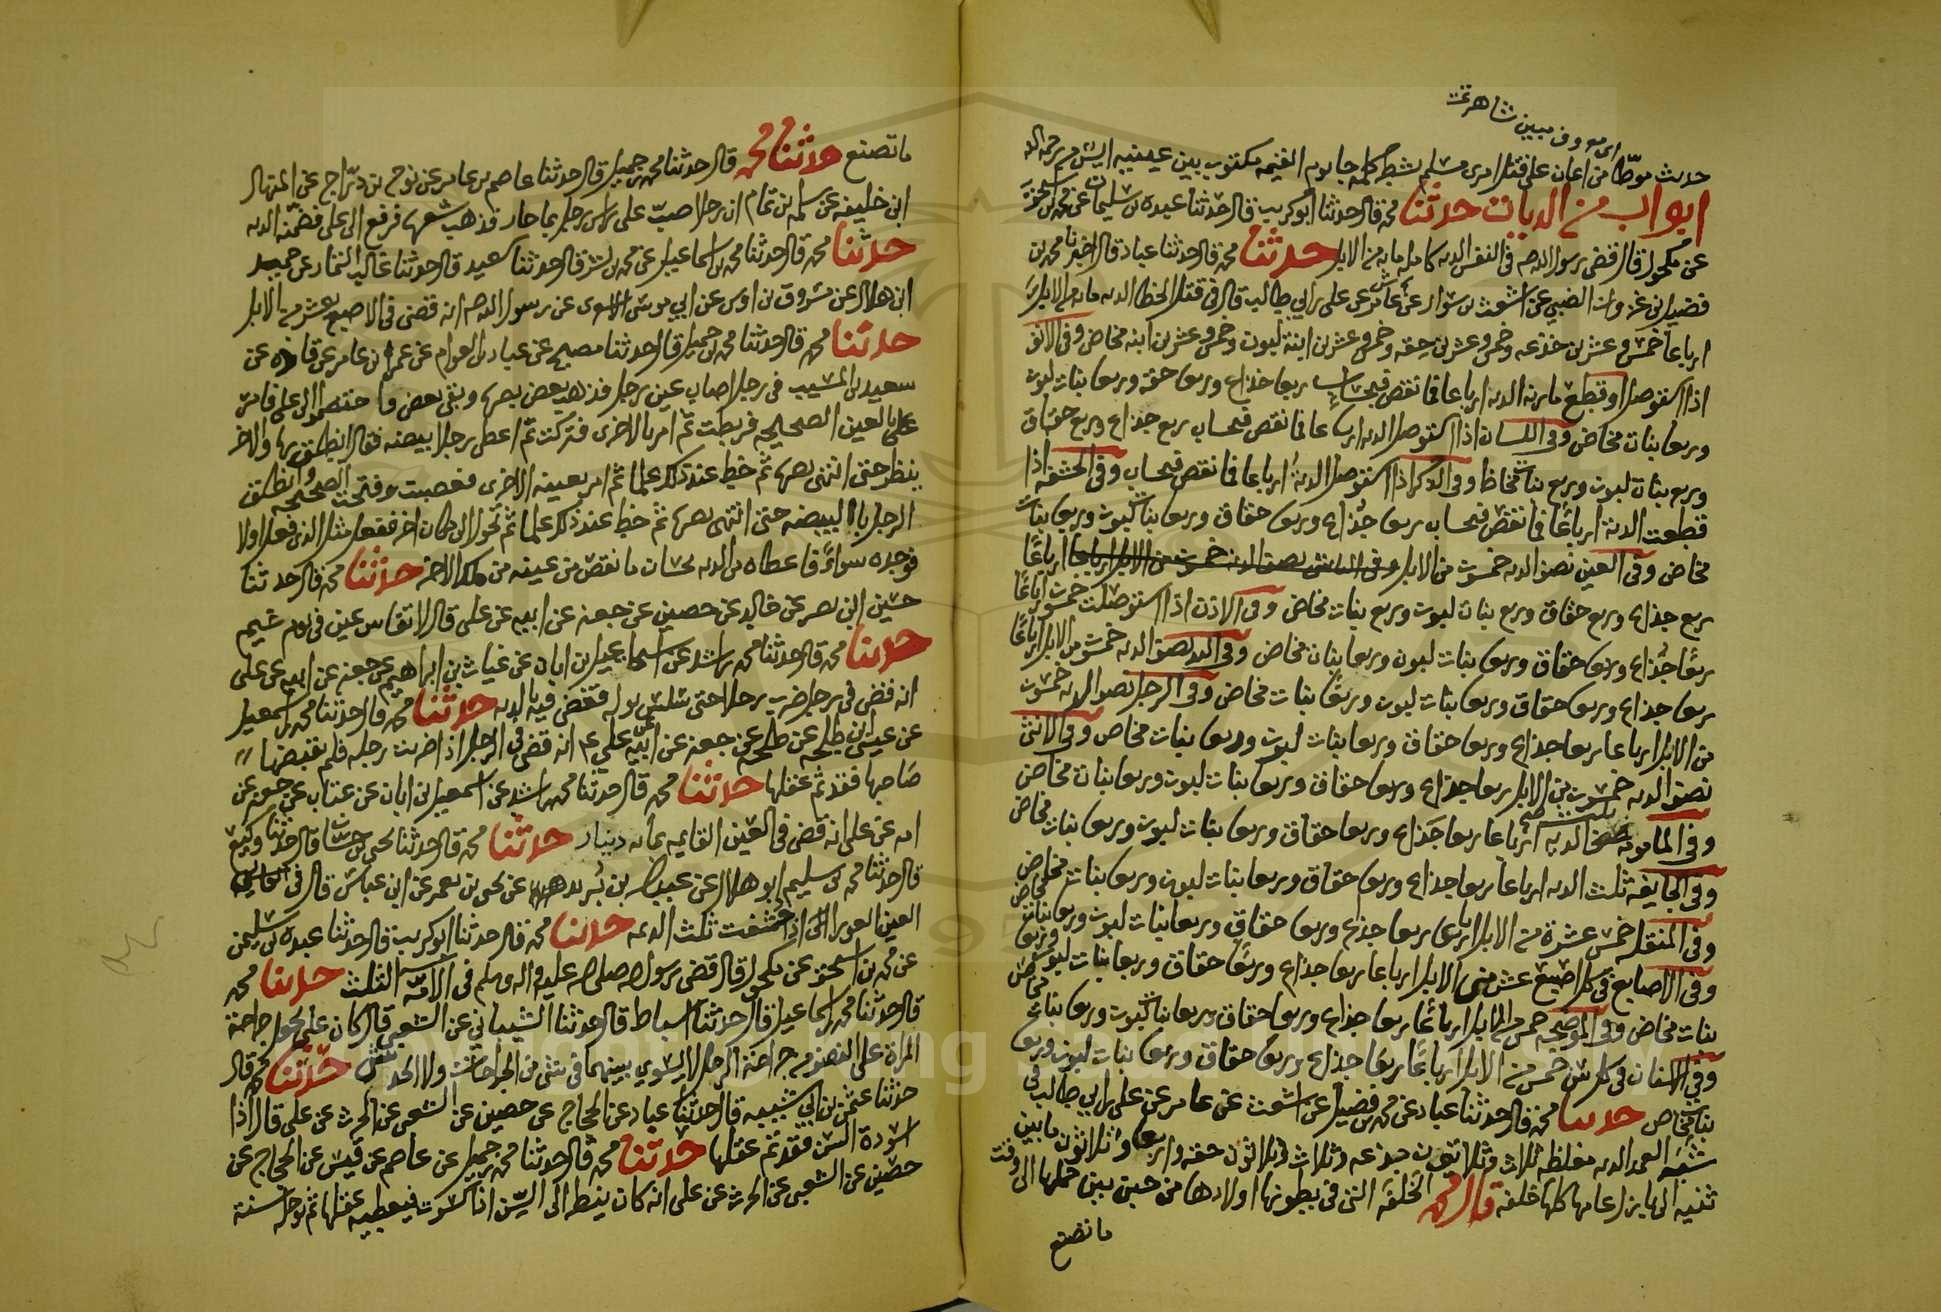 حدث موطا من اعان على قتل امرئ مسلم بشطر كلمة جا يوم القيمه مكتوب بين عينيه ايس من رحمة الله
ابواب من الديات حدثنا محمد قال حدثنا ابو كريب قال حدثنا عبده بن سليمان عن محمد بن اسحق
عن مكحول قال قضى رسول الله صم في النفس الديه كامله مايه من الابل حدثنا محمد قال حدثنا عباد قال اخبرنا محمد بن
فضيل بن غزوان الضبي عن اشعث بن سوار عن عامر عن علي بن ابي طالب قال في قتل الخطا الديه مايه من الابل
ارباعا خمس وعشرين جذعه وخمس وعشرين حقه وخمس وعشرين ابنة لبون وخمس وعشرين ابنه مخاض وفي الانف
اذا استوصل او قطع مارنه الديه ارباعا فما نقص فبحساب ربعا جذاع وربعا حقه وربعا بنات لبون
وربعا بنات مخاض وفي اللسان اذا استوصل الديه ارباعا فما نقص فبحساب ربع جذاع وربع حقاق
وربع بنات لبون وربع بنات مخاض وفي الذكر اذا استوصل الدية ارباعا فما نقص فبحساب وفي الحشفه اذا
قطعت الدية ارباعا فما نقص فبحساب ربعا جذاع وربعا حقاق وربعا بنات لبون وربعا بنات
مخاض وفي العين نصف الديه خمسون من الابل ارباعا
ربع جذاع وربع حقاق وربع بنات لبون وربع بنات مخاض وفي الاذن اذا استوصلت خمسون ارباعا
ربعا جذاع وربعا حقاق وربعا بنات لبون وربعا بنات مخاض وفي اليد نصف الديه خمسون من الابل ارباعا
ربعا جذاع وربعا حقاق وربعا بنات لبون وربعا بنات مخاض وفي الرجل نصف الديه خمسون
من الابل ارباعا ربعا جذاع وربعا حقاق وربعا بنات لبون وربعا بنات مخاض وفي الانثى
نصف الديه خمسون من الابل ربعا جذاع وربعا حقاق وربعا بنات لبون وربعا بنات مخاض
وفي المامومه ثلث الديه ارباعا ربعا جذاع وربعا حقاق وربعا بنات لبون وربعا بنات مخاض
وفي الجايفه ثلث الديه ارباعا ربعا جذاع وربعا حقاق وربعا بنات لبون وربعا بنات مخاض
وفي المنقله خمس عشرة من الابل ارباعا ربعا جذاع وربعا حقاق وربعا بنات لبون وربعا بنات مخاض
وفي الاصابع في كل اصبع عشر من الابل ارباعا ربعا جذاع وربعا حقاق وربعا بنات لبون وربعا
بنات مخاض وفي الموضحه خمس من الابل ارباعا ربعا جذاع وربعا حقاق وربعا بنات لبون وربعا بنات مخاض
وفي الاسنان في كل سن خمس من الابل ارباعا ربعا جذاع وربعا حقاق وربعا بنات لبون وربعا
بنات مخاض حدثنا محمد قال حدثنا عباد عن محمد بن فضيل عن اشعث عن عامر عن علي بن ابي طالب في
شبه العمد الديه مغلظه ثلاث وثلاثون جذعه وثلاث وثلاثون حقه واربعا وثلاثون ما بين
ثنيه الى بازل عامها كلها خلفه قال محمد الخلفه التي في بطونها اولادها من حين يبين حملها الى وقت
ما تضع
ما تصنع حدثنا محمد قال حدثنا محمد بن جميل قال حدثنا عاصم بن عامر عن نوح بن دراج عن المنهال
ابن خليفه عن سلمه بن تمام ان رجلا صب على راس رجل ما حار فذهب شعرها فرفع الى علي فضمنه الديه
حدثنا محمد قال حدثنا محمد بن اسماعيل عن محمد بن بشر قال حدثنا سعيد قال حدثنا غالب التمار عن حميد
ابن هلال عن مسروق بن اوس عن ابي موسى الاشعري عن رسول الله صم انه قضى في الاصبع بعشر من الابل
حدثنا محمد قال حدثنا محمد بن جميل قال حدثنا مصبح عن عباد بن العوام عن عمر بن عامر عن قتاده عن
سعيد بن المسيب في رجل اصاب عين رجل فذهب بعض بصرها وبقي بعض فاختصموا الى علي فامر
علي بالعين الصحيحه فربطت ثم امر بالاخرى فتركت ثم اعطى رجلا بيضه فقال انطلق بها والاخر
ينظر حتى انتهى بصرها ثم خط عند ذلك علما ثم امر بعينه الاخرى فعصبت وفتحت الصحيحه وانطلق
الرجل بالبيضه حتى انتهى بصرها ثم خط عند ذلك علما ثم تحول الى مكان اخر ففعل مثل الذي فعل اولا
فوجده سواء فاعطاه من الديه بحساب ما نقص من عينه من مال الاخر حدثنا محمد قال حدثنا
حسين ابن نصر عن خالد عن حصين عن جعفر عن ابيه عن علي قال لا تقاس عين في يوم غيم
حدثنا محمد قال حدثنا محمد بن راشد عن اسماعيل بن ابان عن غياث بن ابراهيم عن جعفر عن ابيه عن علي
انه قضى في رجل ضرب رجلا حتى سلس بوله فقضى فيه الديه حدثنا محمد قال حدثنا محمد بن اسمعيل
عن عيسى بن طلحه عن جعفر عن ابيه علي عم انه قضى في الرجل اذا ضربت رجله فلم يقبضها
صاحبها فقد تم عقلها حدثنا محمد قال حدثنا محمد بن راشد عن اسمعيل بن ابان عن غياث عن جعفر عن
ابيه عن علي انه قضى في العين القايمه بمايه دينار حدثنا محمد قال حدثنا يحيى قال حدثنا وكيع
قال حدثنا محمد بن سليم ابو هلال عن عبد الله بن بريده عن يحيى بن يعمر عن ابن عباس قال في
العين العورا اذا خسفت ثلث الديه حدثنا محمد قال حدثنا ابو كريب قال حدثنا عبده بن سليمن
عن محمد بن اسحق عن مكحول قال قضى رسول الله صلى الله عليه واله وسلم في الامه الثلث حدثنا محمد
قال حدثنا محمد بن اسماعيل قال حدثنا اسباط قال حدثنا الشيباني عن الشعبي قال كان علي يجعل جراحة
المراة على النصف من جراحة الرجل لا يستوي بينهما في شي من الجراحات ولا الحدش حدثنا محمد قال
حدثنا عثمن بن ابي شيبه قال حدثنا عباد عن الحجاج عن حصين عن الشعبي عن الحرث عن علي قال اذا
اسودة السن فقد تم عقلها حدثنا محمد قال حدثنا محمد بن جميل عن عاصم عن قيس عن الحجاج عن
حصين عن الشعبي عن الحرث عن علي انه كان ينظر الى السن اذا كسرت فيعطيه عقلها ثم يوجله سنة